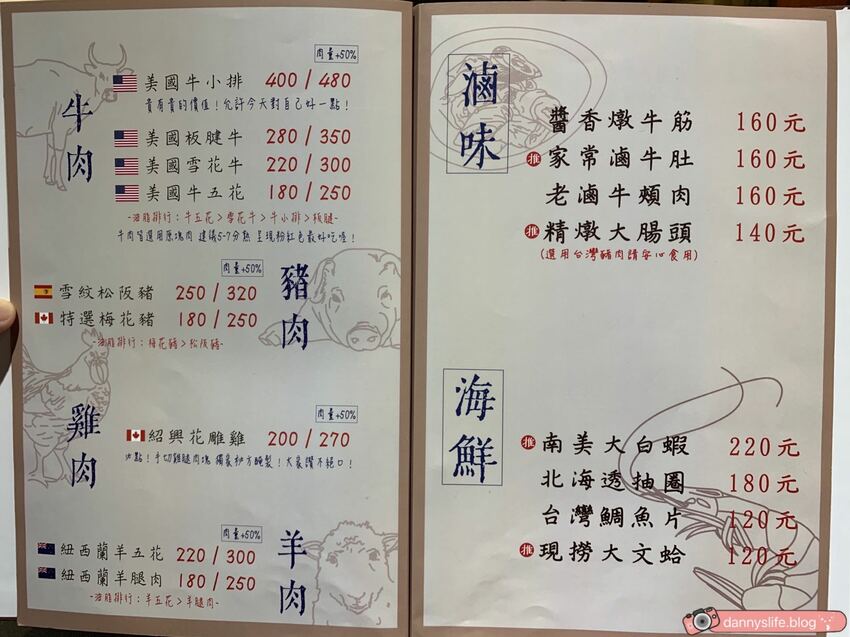 牛肉
肉量+50%
美國牛小排 400 / 480
貴有貴的價值！允許今天對自己好一點！
美國板腱牛 280 / 350
美國雪花牛 220 / 300
美國牛五花 180 / 250
-油脂排行：牛五花>雪花牛>牛小排>板腱-
牛肉皆選用原塊肉 建議5-7分熟 呈現粉紅色最好吃喔！
豬肉
肉量+50%
雪紋松阪豬 250 / 320
特選梅花豬 180 / 250
-油脂排行：梅花豬>松阪豬-
雞肉
肉量+50%
紹興花雕雞 200 / 270
必點！手切雞腿肉塊 獨家秘方醃製！大家讚不絕口！
羊肉
肉量+50%
紐西蘭羊五花 220 / 300
紐西蘭羊腿肉 180 / 250
-油脂排行：羊五花>羊腿肉-
滷味
醬香燉牛筋 160元
推 家常滷牛肚 160元
老滷牛頰肉 160元
推 精燉大腸頭 140元
(選用台灣豬肉請安心食用)
海鮮
推 南美大白蝦 220元
北海透抽圈 180元
台灣鯛魚片 120元
推 現撈大文蛤 120元
dannyslife.blog